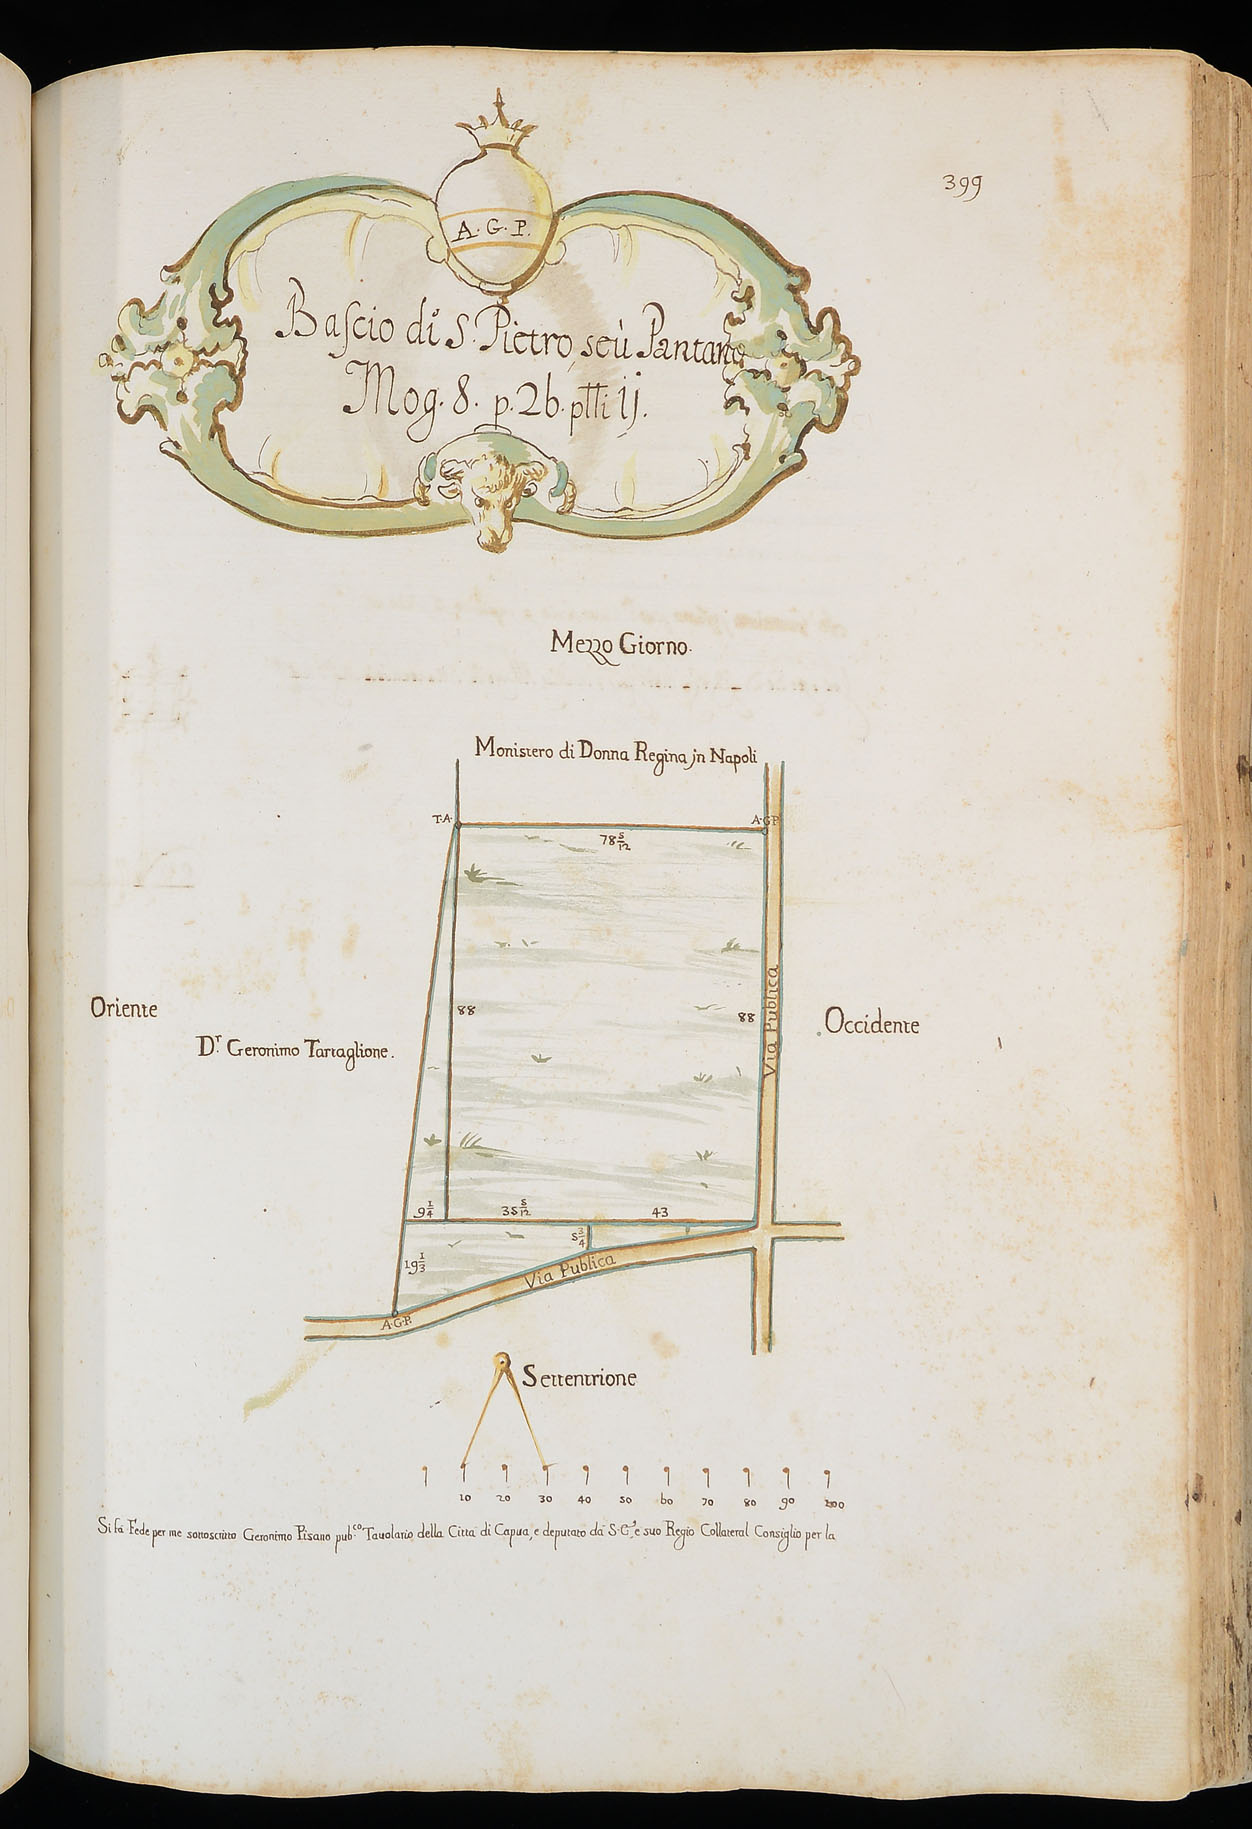 399
A. G. P.
Bascio di S. Pietro, seù Pantano
Mog. 8. p. 26. ptti ij.
Mezzo Giorno.
Monistero di Donna Regina jn Napoli
T.A.
A.G.P.
78 5/12
Oriente
88
88
Via Publica
Occidente
Dr. Geronimo Tartaglione.
9 1/4
35 5/12
43
5 3/4
19 1/3
Via Publica
A.G.P.
Settentrione
10 20 30 40 50 60 70 80 90 100
Si fà Fede per me sottoscritto Geronimo Pisano pub.co Tauolario della Città di Capua, e deputato da S. C. e suo Regio Collateral Consiglio per la